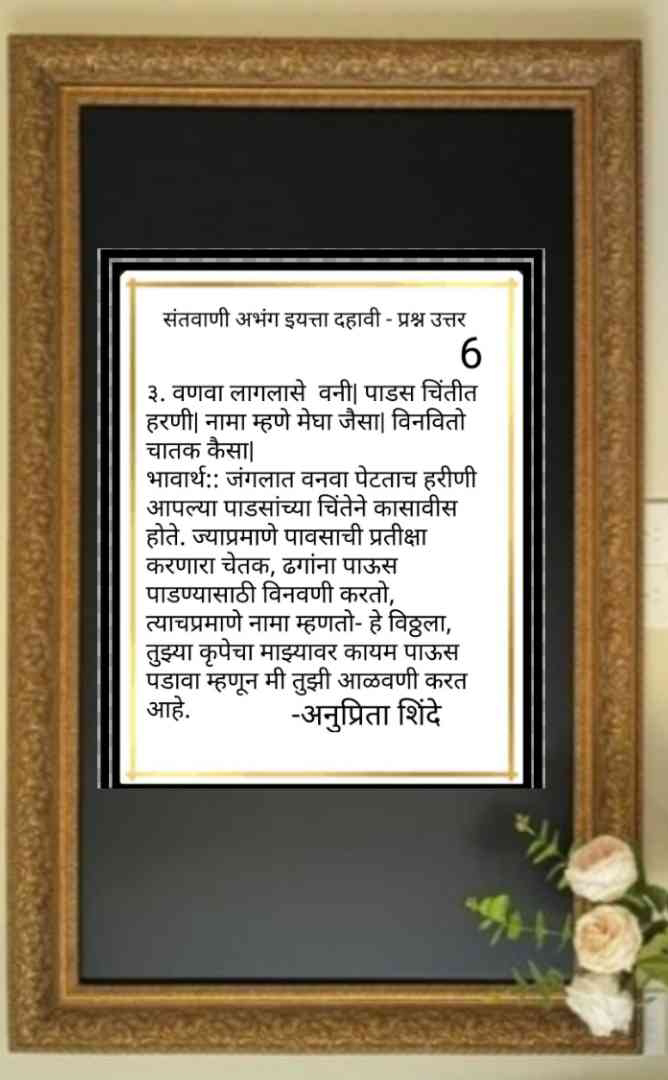 संतवाणी अभंग इयत्ता दहावी - प्रश्न उत्तर
6
३. वणवा लागलासे वनी| पाडस चिंतीत
हरणी| नामा म्हणे मेघा जैसा| विनवितो
चातक कैसा|
भावार्थ:: जंगलात वनवा पेटताच हरीणी
आपल्या पाडसांच्या चिंतेने कासावीस
होते. ज्याप्रमाणे पावसाची प्रतीक्षा
करणारा चेतक, ढगांना पाऊस
पाडण्यासाठी विनवणी करतो,
त्याचप्रमाणे नामा म्हणतो- हे विठ्ठला,
तुझ्या कृपेचा माझ्यावर कायम पाऊस
पडावा म्हणून मी तुझी आळवणी करत
आहे. -अनुप्रिता शिंदे